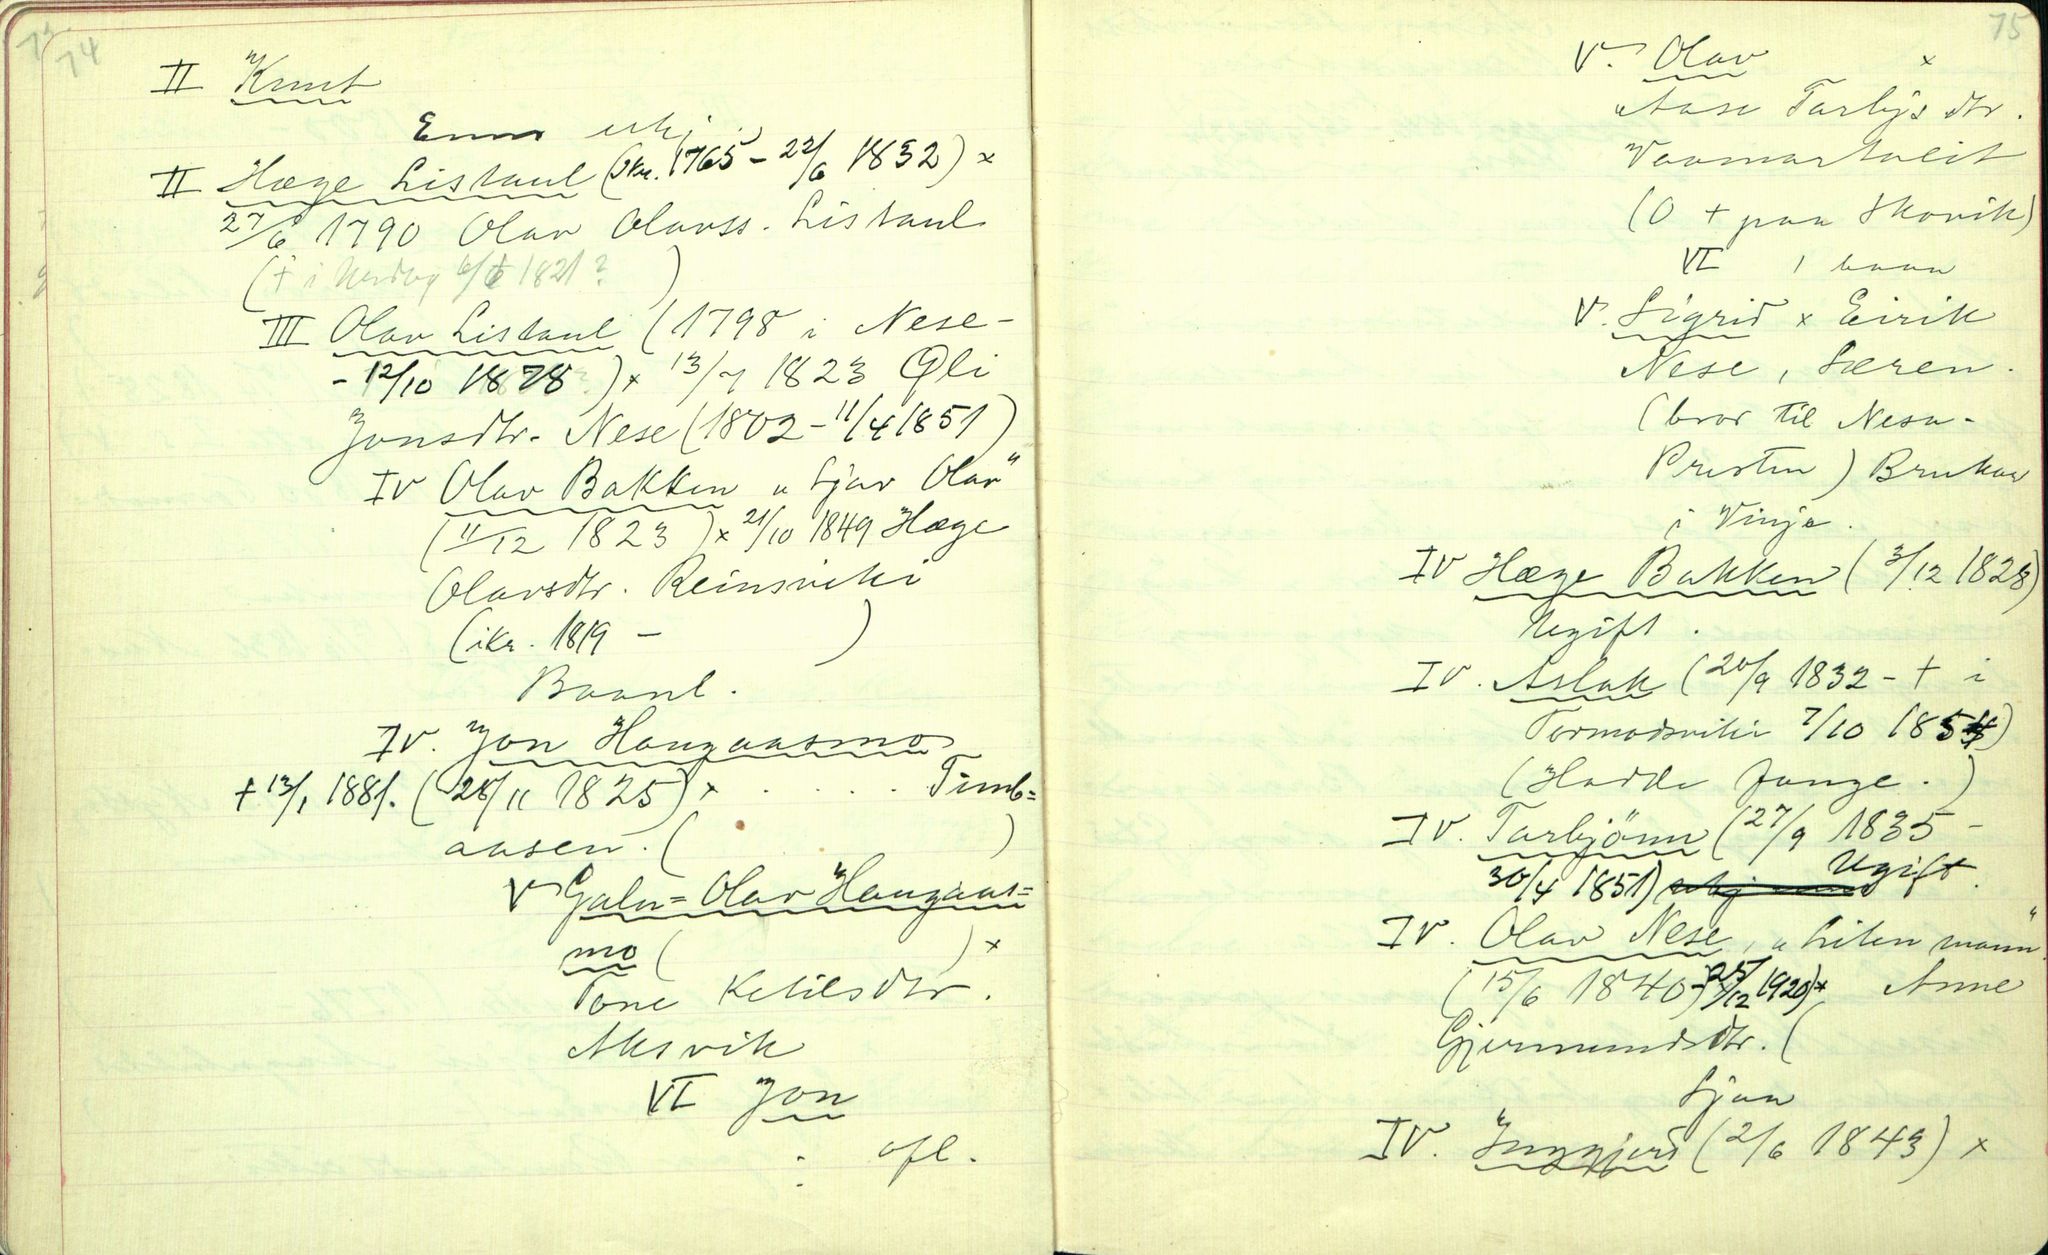 74
II Knut
II Hæge Listaul (Ikr. 1765 - 22/6 1832) ×
27/6 1790 Olav Olavss. Listaul
(† i 6/6 1821? )
III Olav Listaul (1798 i Nese -
- 12/10 1878 ) × 13/7 1823 Gli
Jonsdtr. Nese (1802 - 11/4 1851)
IV Olav Bakken „Sjav Olav"
(11/12 1823 ) × 21/10 1849 Hæge
Olavsdtr. Reinsviki
(ikr. 1819 - )
Baanl.
IV. Jon Haugaasmo
† 13/1 1881. (28/11 1825) × . . . . . Timb=
aasen. ( )
V Galn=Olav Haugaas=
mo ( ) ×
Tone Ketilsdtr.
Aksvik
VI Jon
: ofl.
75
V. Olav ×
Aase Tarbjs dtr.
Vaamartveit
(O † paa Skorvik)
VI 1 baan
V. Sigrid × Eirik
Nese, Særen.
(bror til Nesa-
Presten) Brukar
i Vinje.
IV Hæge Bakken (3/12 1828)
Ugift.
IV. Aslak (20/9 1832 - † i
Tormodsviki 7/10 185)
(Hadde Junge.)
IV. Tarbjönn (27/9 1835 -
30/4 1851) Ugift.
IV. Olav Nese, „Liten mann"
(15/6 1840 - 25/12 1920) × Anne
Gjermundsdtr. (
Sjaa
IV. Inggjerd (2/6 1843) ×